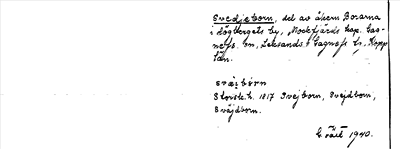 Svedjeborn, del av åkern Bovarna
i Högbergets by, Mockfjärds kap. Gag-
nefs sn, Leksands o Gagnefs tg, Kopp
län.
svæ̀ibörn
Storsk. h. 1817 Svejborn, Svejdborn,
Svåjdborn.
1940.